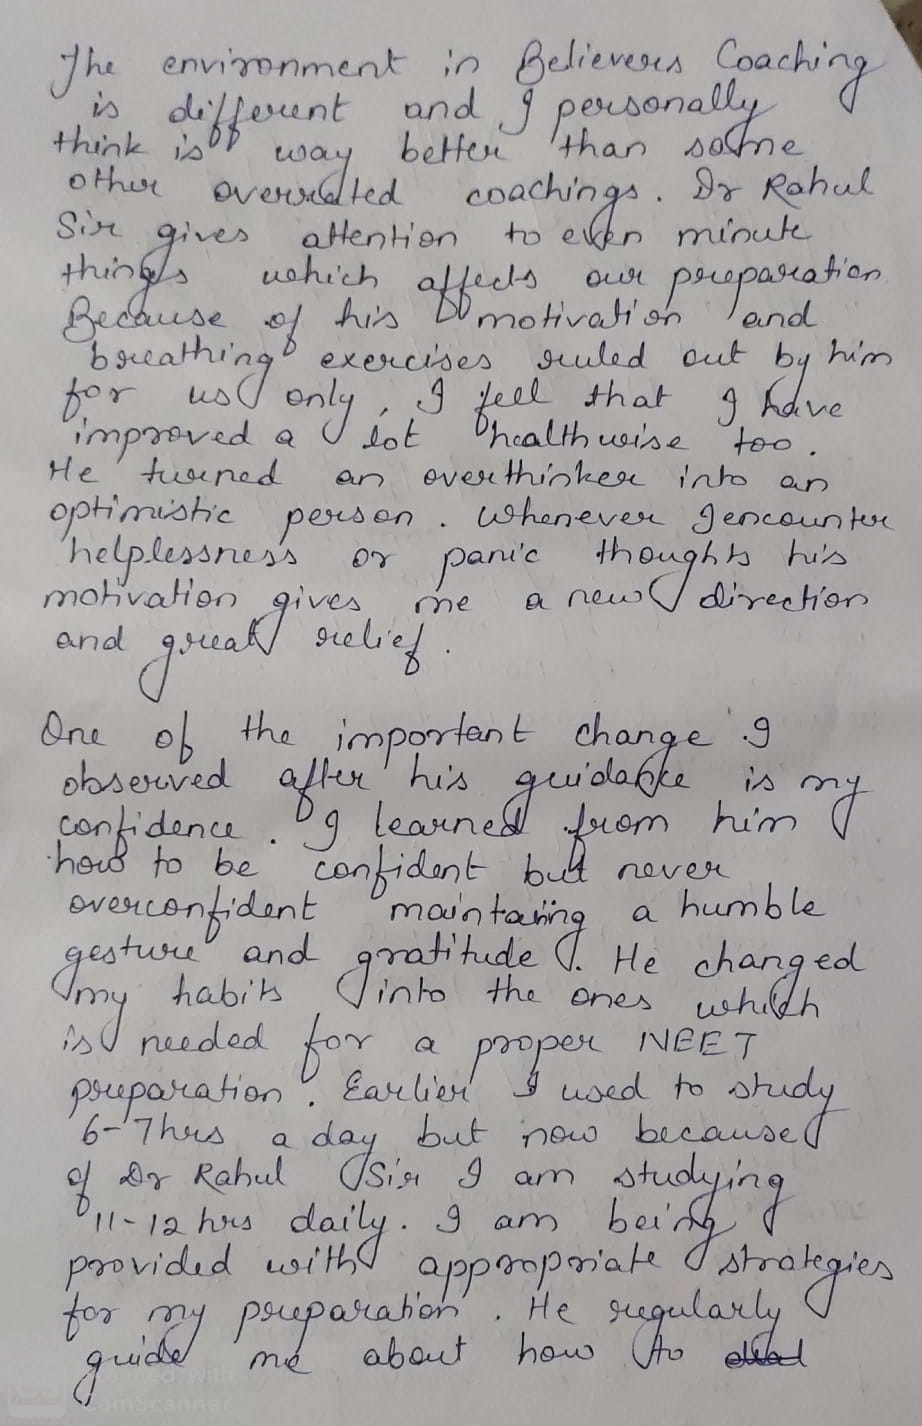 The environment in Believers Coaching
is different and I personally
think is way better than some
other overrated coachings. Dr Rahul
Sir gives attention to even minute
things which affects our preparation
Because of his motivation and
breathing exercises ruled out by him
for us only, I feel that I have
improved a lot healthwise too.
He turned an overthinker into an
optimistic person. Whenever I encounter
helplessness or panic thoughts his
motivation gives me a new direction
and great relief.
One of the important change I
observed after his guidance is my
confidence. I learned from him
how to be confident but never
overconfident maintaing a humble
gesture and gratitude. He changed
my habits into the ones which
is needed for a proper NEET
preparation. Earlier I used to study
6-7hrs a day but now because
of Dr Rahul Sir I am studying
11-12 hrs daily. I am being
provided with appropriate strategies
for my preparation. He regularly
guide me about how to
Scanned with
CamScanner